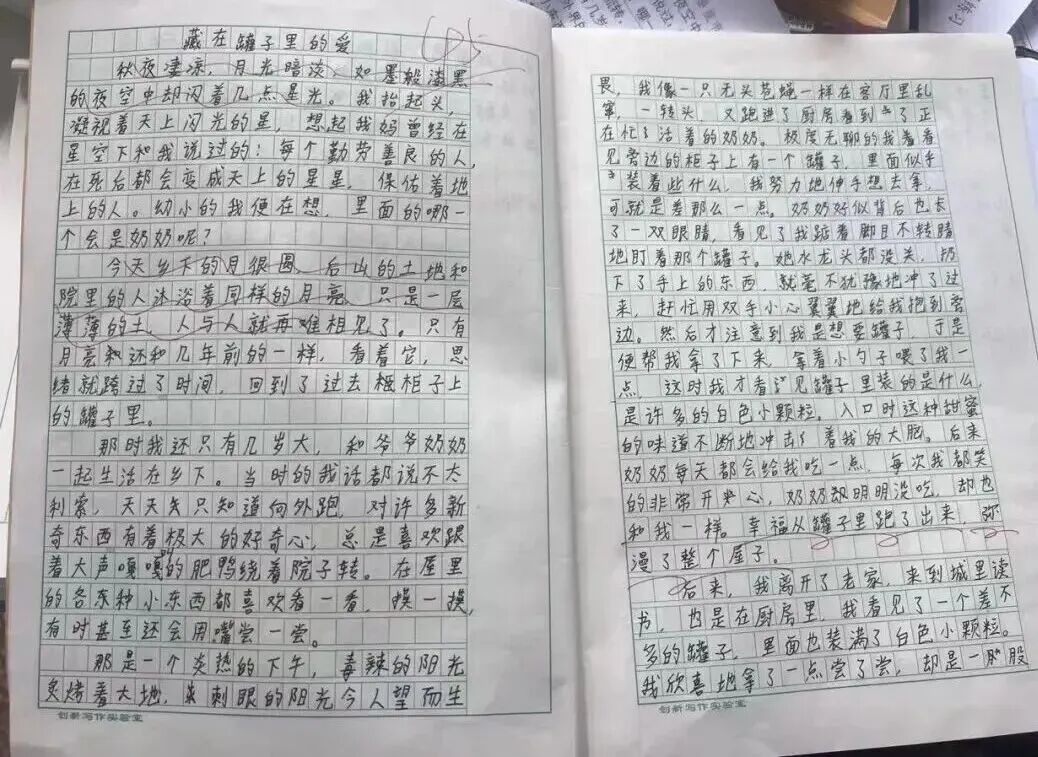 藏在罐子里的爱
秋夜凄凉，月光暗淡，如墨般漆黑
的夜空中却闪着几点星光。我抬起头，
凝视着天上闪光的星，想起我妈曾经在
星空下和我说过的：每个勤劳善良的人，
在死后都会变成天上的星星，保佑着地
上的人。幼小的我便在想，里面的哪一
个会是奶奶呢？
今天乡下的月很圆，后山的土地和
院里的人沐浴着同样的月亮，只是一层
薄薄的土，人与人就再难相见了。只有
月亮和还和几年前的一样，看着它，思
绪就跨过了时间，回到了过去柜子上
的罐子里。
那时我还只有几岁大，和爷爷奶奶
一起生活在乡下。当时的我话都说不太
利索，天天只知道向外跑，对许多新
奇东西有着极大的好奇心，总是喜欢跟
着大声嘎嘎的肥鸭绕着院子转。在屋里
的各种小东西都喜欢看一看，摸一摸，
有时甚至还会用嘴尝一尝。
那是一个炎热的下午，毒辣的阳光
炙烤着大地，刺眼的阳光令人望而生
创新写作实验室
畏，我像一只无头苍蝇一样在客厅里乱
窜，一转头，又跑进了厨房看到了正
在忙活着的奶奶。极度无聊的我看看
见旁边的柜子上有一个罐子，里面似乎
装着些什么，我努力地伸手想去拿，
可就是差那么一点。奶奶好似背后也长
了一双眼睛，看见了我踮着脚目不转睛
地盯着那个罐子。她水龙头都没关，扔
下了手上的东西，就毫不犹豫地冲了过
来，赶忙用双手小心翼翼地给我抱到旁
边。然后才注意到我是想要罐子，于是
便帮我拿了下来，拿着小勺子喂了我一
点，这时我才看见罐子里装的是什么，
是许多的白色小颗粒。入口时这种甜蜜
的味道不断地冲击着我的大脑。后来
奶奶每天都会给我吃一点，每次我都笑
的非常开心，奶奶明明没吃，却也
和我一样。幸福从罐子里跑了出来，弥
漫了整个屋子。
后来，我离开了老家，来到城里读
书，也是在厨房里，我看见了一个差不
多的罐子，里面也装满了白色小颗粒。
我欣喜地拿了一点尝了尝，却是一股
创新写作实验室